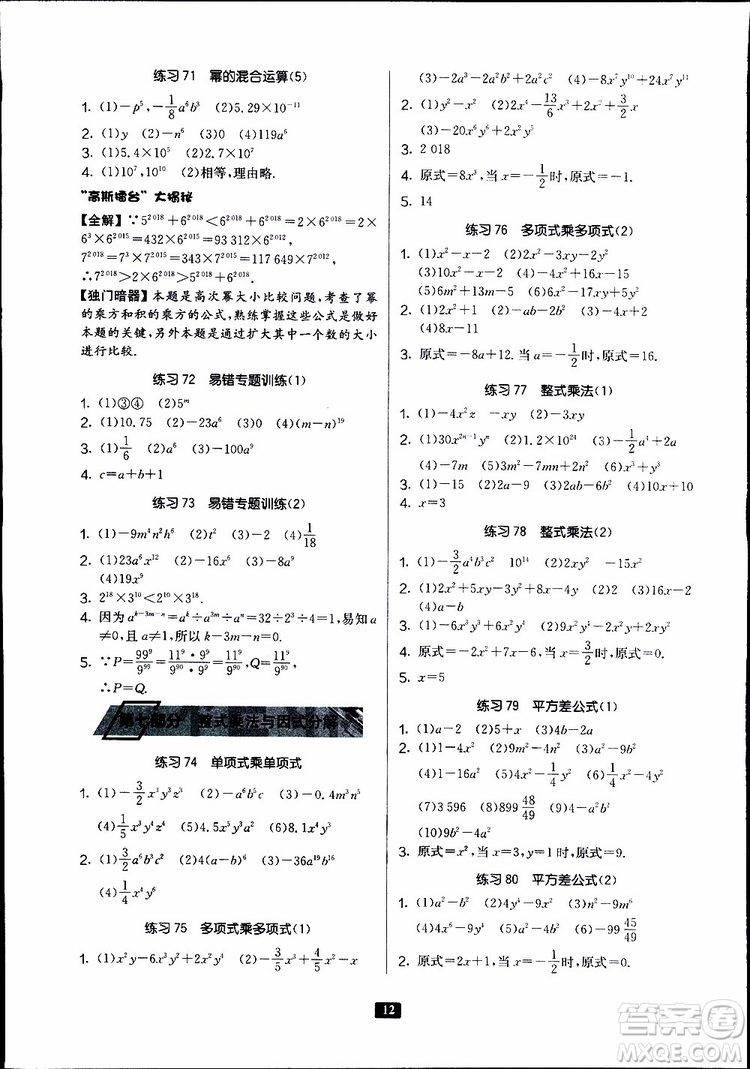 练习 71 幂的混合运算(5)
1. (1)-p⁵, -1/8 a⁶b³ (2)5.29×10⁻¹¹
2. (1)y (2)-n⁶ (3)0 (4)119a⁶
3. (1)5.4×10⁵ (2)2.7×10⁵
4. (1)10⁷, 10¹⁰ (2)相等,理由略.
“高斯擂台”大揭秘
【全解】∵5²⁰¹⁸+6²⁰¹⁸<6²⁰¹⁸+6²⁰¹⁸=2×6²⁰¹⁸=2×
6³×6²⁰¹⁵=432×6²⁰¹⁵=93 312×6²⁰¹²,
7²⁰¹⁸=7³×7²⁰¹⁵=343×7²⁰¹⁵=117 649×7²⁰¹².
∴7²⁰¹⁸>2×6²⁰¹⁸>5²⁰¹⁸+6²⁰¹⁸.
【独门暗器】本题是高次幂大小比较问题,考查了幂
的乘方和积的乘方的公式,熟练掌握这些公式是解决
本题的关键,另外本题通过扩大其中一个数的大小
进行比较.
练习 72 易错专题训练(1)
1. (1)③④ (2)5ᵐ
2. (1)10.75 (2)-23a⁶ (3)0 (4)(m-n)¹⁹
3. (1)1/6 (2)-a⁵ (3)-100a⁹
4. c=a+b+1
练习 73 易错专题训练(2)
1. (1)-9m⁴n²h⁶ (2)t² (3)-8a⁹ (4)1/18
2. (1)23a⁶x¹² (2)-17a⁶ (3)-a⁵
(4)19x⁹
3. 2¹⁸×3¹⁰<2¹⁰×3¹⁵.
4. 因为aᵏ⁻³ᵐ⁻ⁿ=aᵏ÷a³ᵐ÷aⁿ=32÷2³÷4=1,易知a
≠0,且a≠1,所以k-3m-n=0.
5. ∵P=99⁹/9⁹⁹=11⁹·9⁹/9⁹⁹=11⁹/9⁹⁰, Q=11⁹/9⁹⁰,
∴P=Q.
第七部分 整式乘法与因式分解
练习 74 单项式乘单项式
1. (1)-3/2 x³y³z³ (2)-a⁶b²c (3)-0.4m³n⁵
(4)1/5 x³y³ (5)4.5x³y³ (6)8.1x⁴y³
2. (1)3/2 a⁶b³c² (2)4(a-b)⁵ (3)-36a¹⁹
(4)1/4 x⁴y⁶
练习 75 多项式乘多项式(1)
1. (1)x²y-6x³y²+2x²y³ (2)-3/5 x³-3/5 x²-x
(3)-2a³-2a²+a (4)6x²y⁷-8x⁴y¹⁰+24x⁷y⁸
2. (1)y²-x² (2)2x⁴-13/6 x³+2x²+3/2 x
(3)-20x⁶y⁶+8x⁵y⁵
3. 2 018
4. 原式=8x³,当x=-1/2时,原式=-1.
5. 14
练习 76 多项式乘多项式(2)
1. (1)x²-x-2 (2)2x²-3xy-2y²
(3)10x²-x-2 (4)x²-2x-8
(5)6m²+13m-5 (6)2x²-17x+8
2. (1)2x²+1 (2)-ab-2b² (3)x²-2
(4)8x-11
3. 原式=-8a+12.当a=-1/2时,原式=16.
练习 77 整式乘法(1)
1. (1)-4x²z -xy (2)-3xy
2. (1)30x²ⁿ⁻¹yⁿ (2)1.2×10²⁴ (3)-1/2a²+2a
(4)-7m (5)-7x²y (6)-x³+xy
3. (1)-15 (2)2a-9 (3)-2ab² (4)10x+10
4. x=3
练习 78 整式乘法(2)
1. (1)-3/2 a⁴b³c² 10¹⁴ (2)20x²y² -15x²
2. (1)2x²+5xy-12y² (2)-4x+7 (3)7
(4)a-b
3. (1)-6x³y³+6x⁴y (2)9x²y²-2x²y-4x³y²
4. 原式=6x+5,当x=1/6时,原式=6.
5. x=5
练习 79 平方差公式(1)
1. (1)2-a (2)5+x² (3)4b-a
2. (1)1-4x² (2)9m²-n² (3)x²-9y²
(4)1-16a² (5)1/16-x² (6)4/9 x²-y²
(7)3 596 (8)899 48/49 (9)x⁴-16y⁴
(10)9b²-4a²
3. 原式=x²,当x=1,y=1时,原式=1.
练习 80 平方差公式(2)
1. (1)a²-b² (2)y⁴-9x² (3)1-a⁴
(4)4x⁶-9y⁴ (5)a⁴-b⁴ (6)-99 45/49
2. 原式=2x+1,当x=-1/2时,原式=0.
12
答案圈